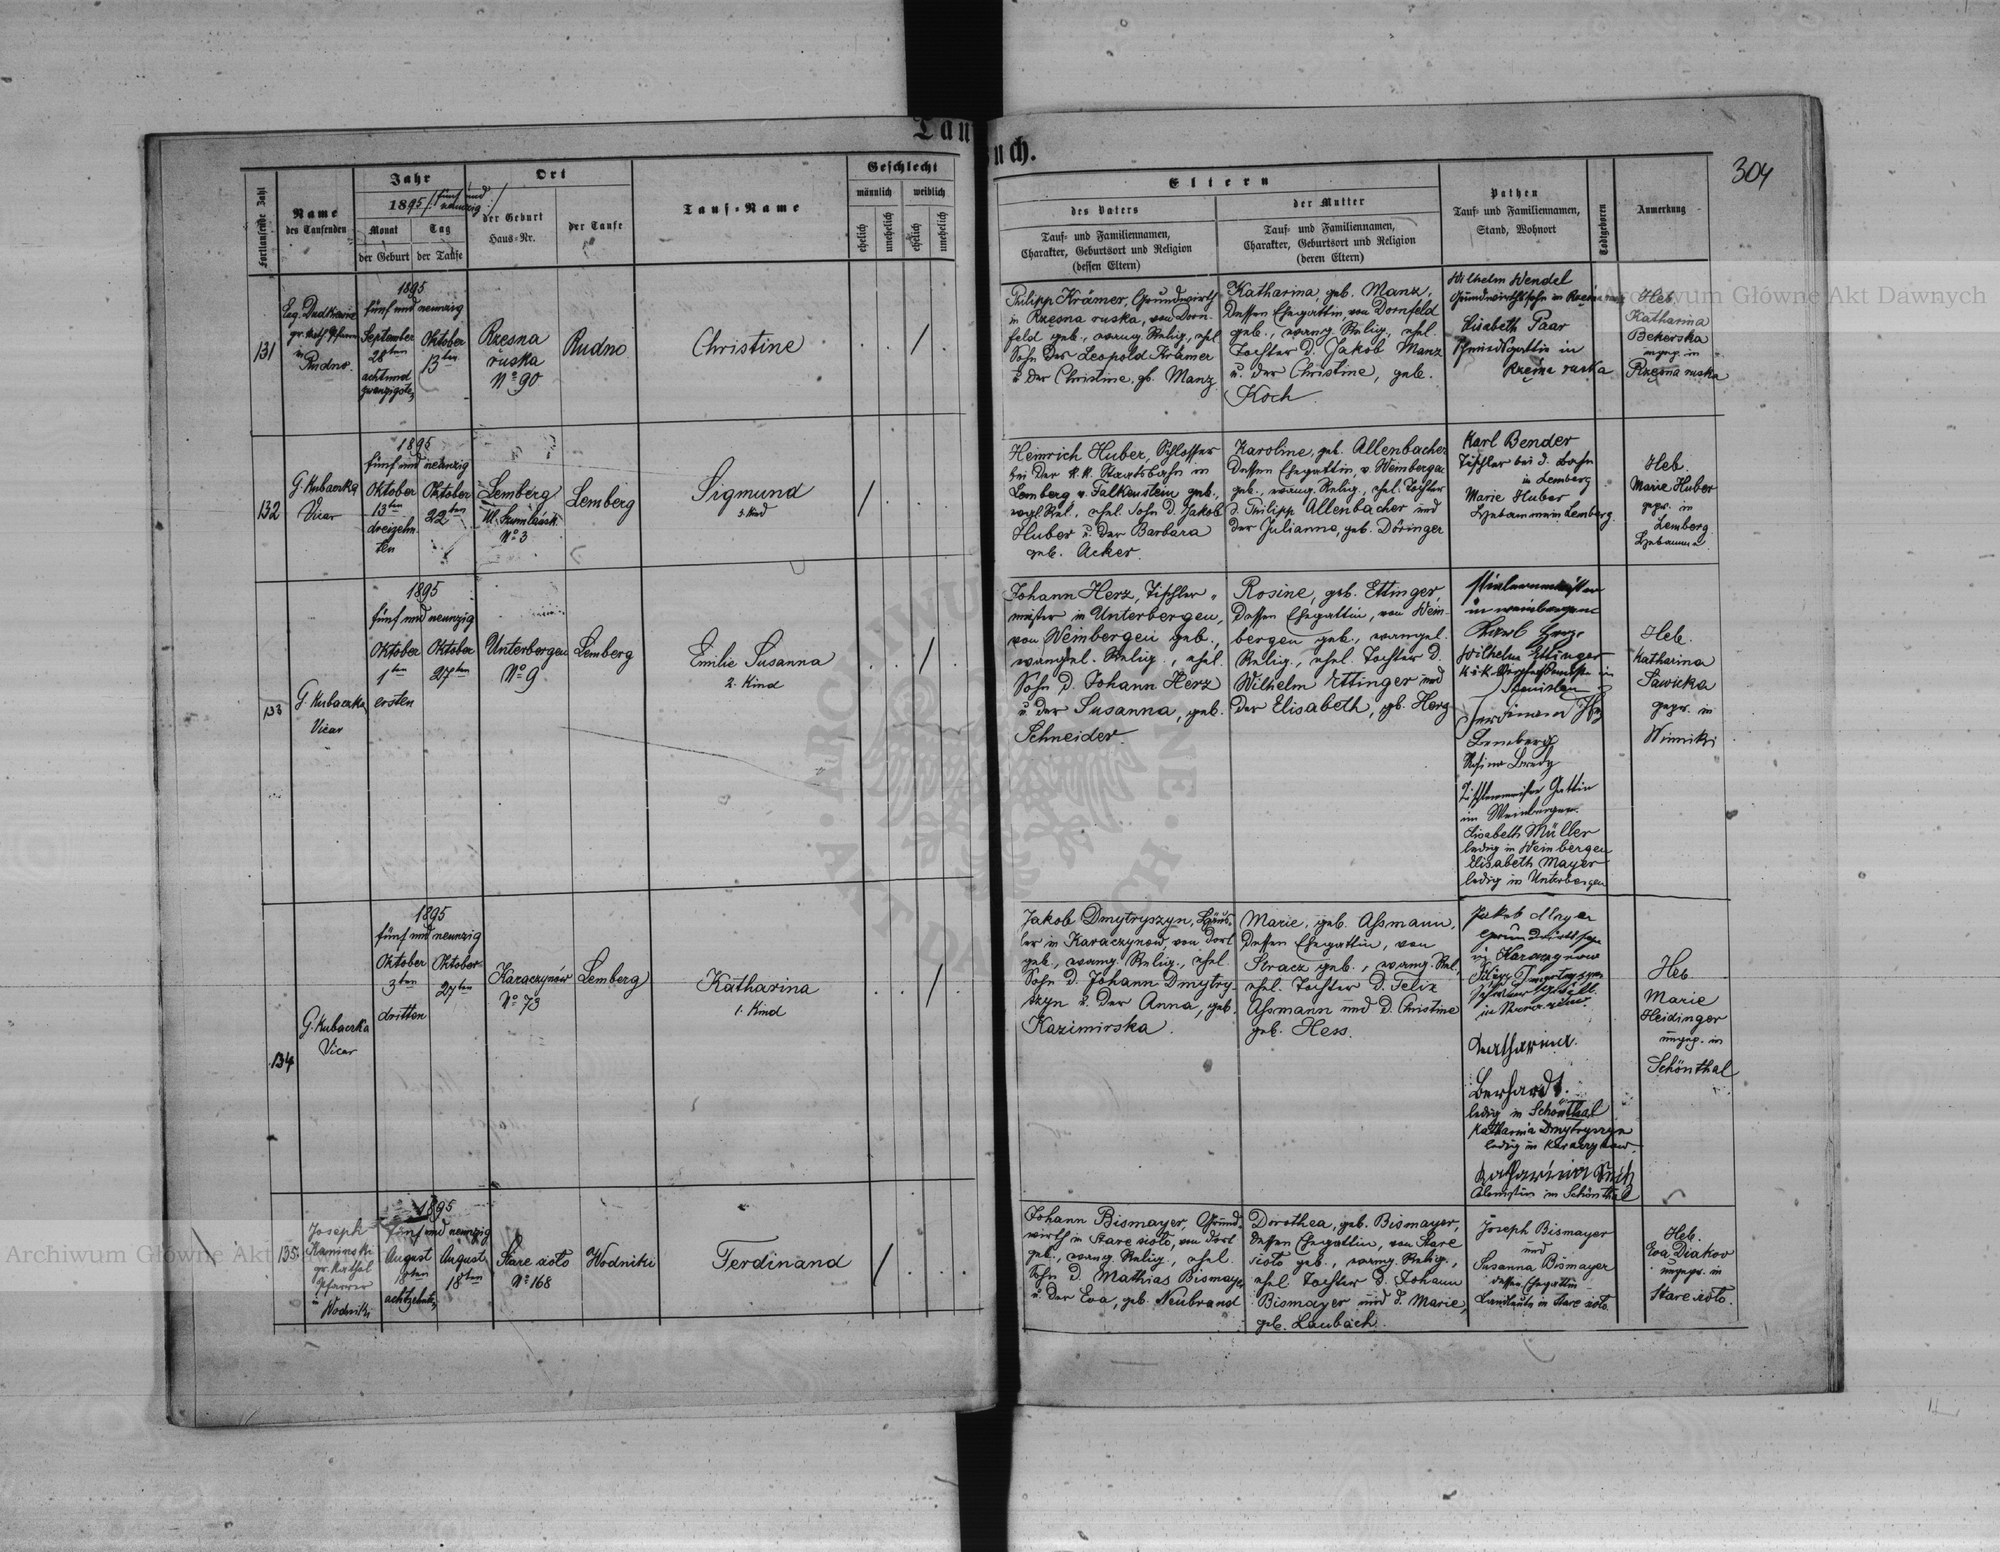 Taufbuch.
304
Fortlaufende Zahl
Name
des Taufenden
Jahr
1895 /: fünf und
neunzig :/
Monat
Tag
der Geburt
der Taufe
Ort
der Geburt
Haus-Nr.
der Taufe
Tauf-Name
Geschlecht
männlich
weiblich
ehelich
unehelich
ehelich
unehelich
Eltern
des Vaters
Tauf- und Familiennamen,
Charakter, Geburtsort und Religion
(dessen Eltern)
der Mutter
Tauf- und Familiennamen,
Charakter, Geburtsort und Religion
(deren Eltern)
Pathen
Tauf- und Familiennamen,
Stand, Wohnort
Todtgeboren
Anmerkung
131
gr. kath. Pfarrer
in
Rudno.
1895
fünf und neunzig
September
28ten
achtund
zwanzigsten
Oktober
13ten
Rzesna
ruska
No 90
Rudno
Christine
Philipp Krämer, Grundwirth
in Rzesna ruska, von Dorn-
feld geb., evang. Relig., ehel.
Sohn des Leopold Krämer
u. der Christine, gb. Manz
Katharina, geb. Manz,
dessen Ehegattin, von Dornfeld
geb., evang. Relig., ehel.
Tochter d. Jakob Manz
u. der Christine, geb.
Koch.
Wilhelm Wendel
Grundwirthssohn in Rzesna ruska
Elisabeth Paar
Schmiedsgattin in
Rzesna ruska
Heb.
Katharina
Bekerska
ungep. in
Rzęsna ruska
132
G. Kubaczka
Vicar
1895
fünf und neunzig
Oktober
13ten
dreizehn-
ten
Oktober
22ten
Lemberg
No 3
Lemberg
Sigmund
3. Kind
Heinrich Huber, Schlosser
bei der k.k. Staatsbahn in
Lemberg v. Falkenstein geb.,
evgl. Rel., ehel. Sohn d. Jakob
Huber u. der Barbara
geb. Acker.
Karoline, geb. Allenbacher
dessen Ehegattin, v. Weinbergen
geb., evang. Relig., ehel. Tochter
d. Philipp Allenbacher und
der Julianna, geb. Döringer
Karl Bender
Tischler bei d. Bahn
in Lemberg
Marie Huber
Hebamme in Lemberg.
Heb.
Marie Huber
gepr. in
Lemberg
Hebamme
133
G. Kubaczka
Vicar
1895
fünf und neunzig
Oktober
1ten
ersten
Oktober
27ten
Unterbergen
No 9
Lemberg
Emilie Susanna
2. Kind
Johann Herz, Tischler-
meister in Unterbergen,
von Weinbergen geb.,
evangel. Relig., ehel.
Sohn d. Johann Herz
u. der Susanna, geb.
Schneider.
Rosine, geb. Ettinger,
dessen Ehegattin, von Wein-
bergen geb., evangel.
Relig., ehel. Tochter d.
Wilhelm Ettinger und
der Elisabeth, gb. Herz
in Weinbergen
Karl Herz
Wilhelm Ettinger
Stanislau
Ferdinand
Lemberg
Tischlermeisters Gattin
in Weinbergen.
Elisabeth Müller
ledig in Weinbergen
Elisabeth Mayer
ledig in Unterbergen
Heb.
Katharina
Sawicka
gepr. in
Winniki
134
G. Kubaczka
Vicar
1895
fünf und neunzig
Oktober
3ten
dritten
Oktober
27ten
Karaczynów
No 73
Lemberg
Katharina
1. Kind
Jakob Dmytryszyn, Häus-
ler in Karaczynow, von dort
geb., evang. Relig., ehel.
Sohn d. Johann Dmytry-
szyn u. der Anna, geb.
Kazimirska.
Marie, geb. Assmann,
dessen Ehegattin, von
Stracz geb., evang. Rel.,
ehel. Tochter d. Felix
Assmann und d. Christine
geb. Hess.
Jakob Mayer
in Karaczynow
Katharina
Berhardt.
ledig in Schönthal
Katharina Dmytryszyn
ledig in Karaczynow.
Katharina
in Schönthal
Heb.
Marie
Heidinger
ungep. in
Schönthal
135.
Joseph
Kaminski
gr. kathol.
Pfarrer
Wodniki
1895
fünf und neunzig
August
18ten
achtzehnten
August
18ten
Stare sioło
No 168
Wodniki
Ferdinand
Johann Bismayer, Grund-
wirth in Stare sioło, von dort
geb., evang. Relig., ehel.
Sohn d. Mathias Bismayer
u. der Eva, geb. Neubrand
Dorothea, geb. Bismayer,
dessen Ehegattin, von Stare
sioło geb., evang. Relig.,
ehel. Tochter d. Johann
Bismayer und d. Marie,
geb. Laubach.
Joseph Bismayer
und
Susanna Bismayer
dessen Ehegattin
Landleute in Stare sioło.
Heb.
Eva Diakow
ungepr. in
Stare sioło.
Archiwum Główne Akt Dawnych